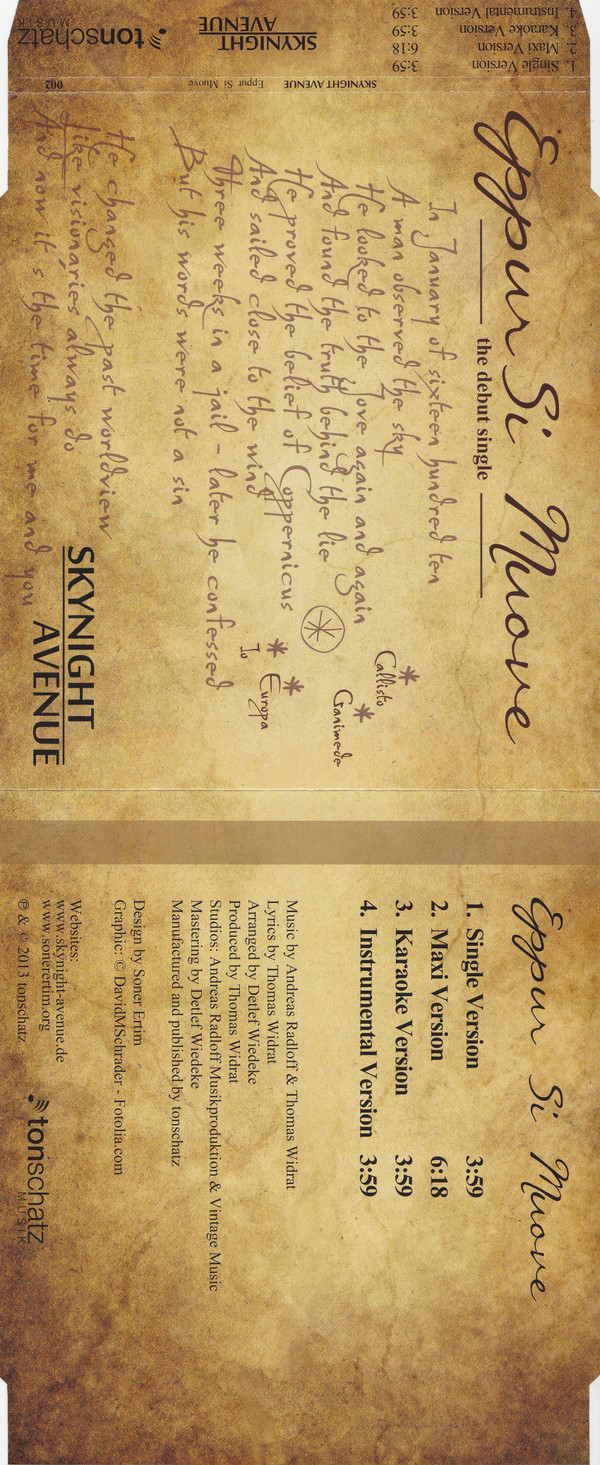 1. Single Version 3:59
2. Maxi Version 6:18
3. Karaoke Version 3:59
4. Instrumental Version 3:59
SKYNIGHT
AVENUE
tonschatz
MUSIK
SKYNIGHT AVENUE Eppur Si Muove 002
Eppur Si Muove
the debut single
In January of sixteen hundred ten
A man observed the sky
He looked to the Jove again and again
And found the truth behind the lie
He proved the belief of Coppernicus
And sailed close to the wind
Three weeks in a jail - later he confessed
But his words were not a sin
He changed the past worldview
Like visionaries always do
And now it's the time for me and you
Callisto
Ganimede
Europa
Io
SKYNIGHT
AVENUE
Eppur Si Muove
1. Single Version 3:59
2. Maxi Version 6:18
3. Karaoke Version 3:59
4. Instrumental Version 3:59
Music by Andreas Radloff & Thomas Widrat
Lyrics by Thomas Widrat
Arranged by Detlef Wiedeke
Produced by Thomas Widrat
Studios: Andreas Radloff Musikproduktion & Vintage Music
Mastering by Detlef Wiedeke
Manufactured and published by tonschatz
Design by Soner Ertim
Graphic: © DavidMSchrader - Fotolia.com
Websites:
www.skynight-avenue.de
www.sonerertim.org
℗ & © 2013 tonschatz
tonschatz
MUSIK